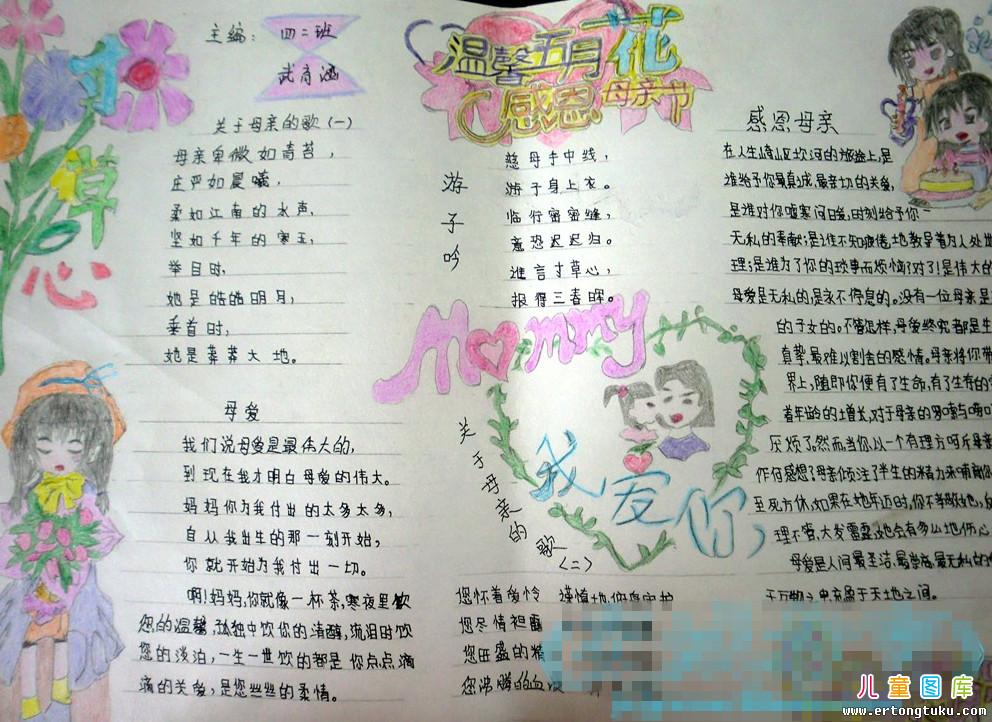 主编：四二班
温馨五月花
感恩母亲节
寸草心
关于母亲的歌(一)
母亲卑微如青苔，
庄严如晨曦，
柔如江南的水声，
坚如千年的寒玉，
举目时，
她是皓皓明月，
垂首时，
她是莽莽大地。
母爱
我们说母爱是最伟大的，
到现在我才明白母爱的伟大。
妈妈你为我付出的太多太多，
自从我出生的那一刻开始，
你就开始为我付出一切。
啊！妈妈，你就像一杯茶，寒夜里饮
您的温馨，孤独中饮你的清醇，流泪时饮
您的淡泊，一生一世饮的都是你点点滴
滴的关爱，是您丝丝的柔情。
游子吟
慈母手中线，
游子身上衣。
临行密密缝，
意恐迟迟归。
谁言寸草心，
报得三春晖。
Mommy
我爱你
关于母亲的歌(二)
您怀着爱怜
您尽情袒露
您旺盛的精
您沸腾的血液
感恩母亲
在人生崎山区坎河的旅途上，是
谁给予你最真诚、最亲切的关爱，
是谁对你嘘寒问暖，时刻给予你
无私的奉献；是谁不知疲倦地教导着为人处世
理；是谁为了你的琐事而烦恼？对了！是伟大的
母爱是无私的，是永不停息的。没有一位母亲是
的子女的。不管怎样，母爱终究都是
真挚、最难以割舍的感情。母亲将你带
界上，随即你便有了生命，有了生存的
着年龄的增长，对于母亲的
厌烦了。然而当你以一个有理方呵斥母亲
作何感想？母亲倾注了半生的精力来哺育你
至死方休，如果在她年迈时，你不孝敬她，
理不管，大发雷霆，她会有多么地伤心
母爱是人间最圣洁、最崇高、最无私的
于万物之中，充盈于天地之间。
儿童图库
www.ertongtuku.com